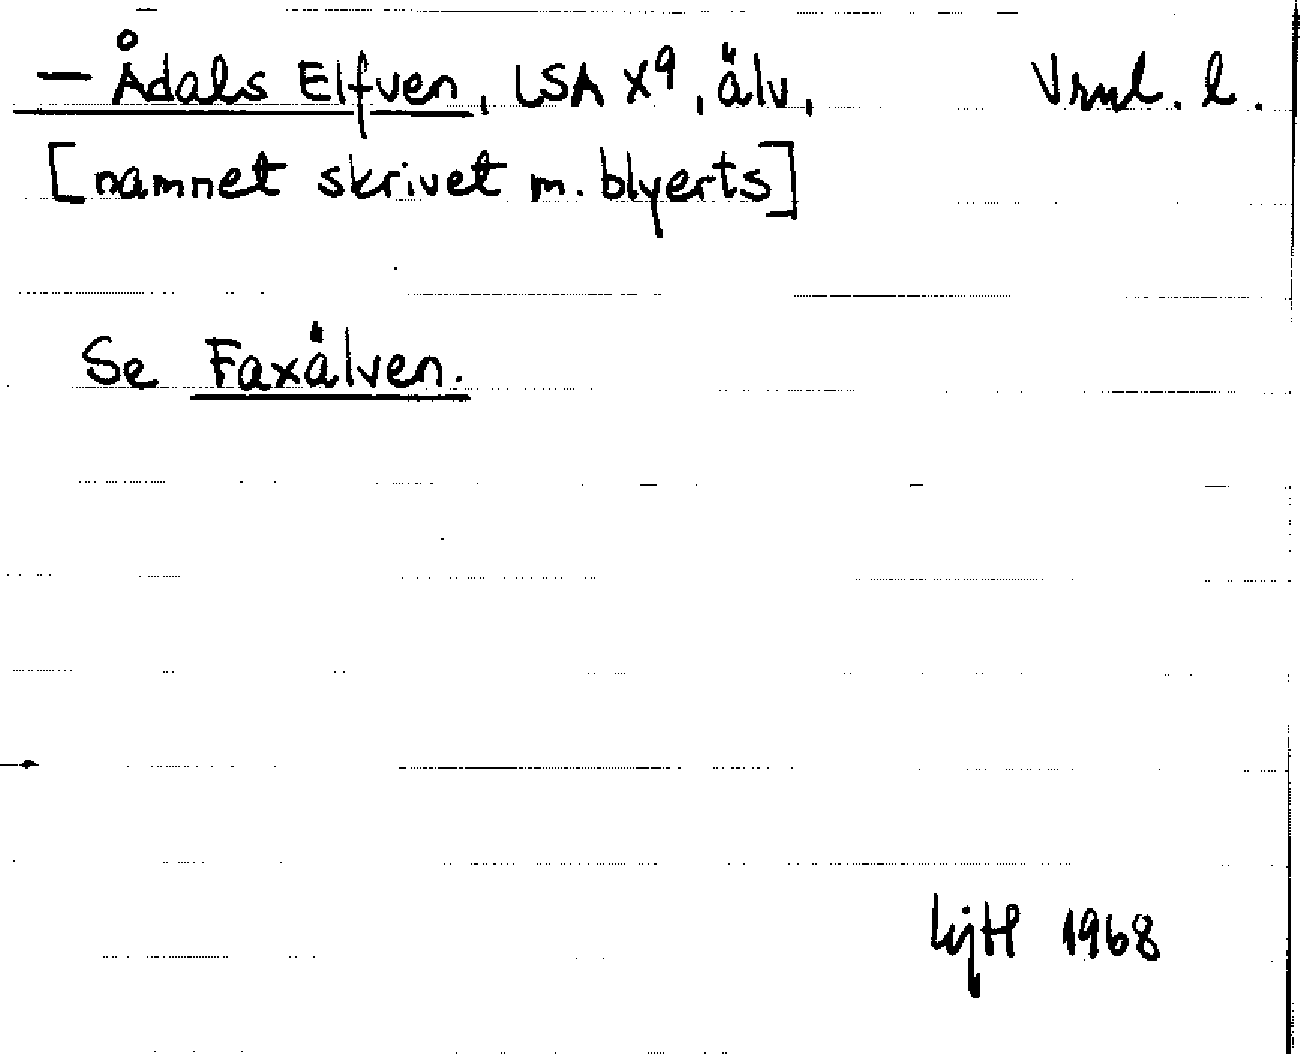 — Ådals Elfven, LSA X9, älv, Vrml. l.
[namnet skrivet m. blyerts]
Se Faxälven.
1968